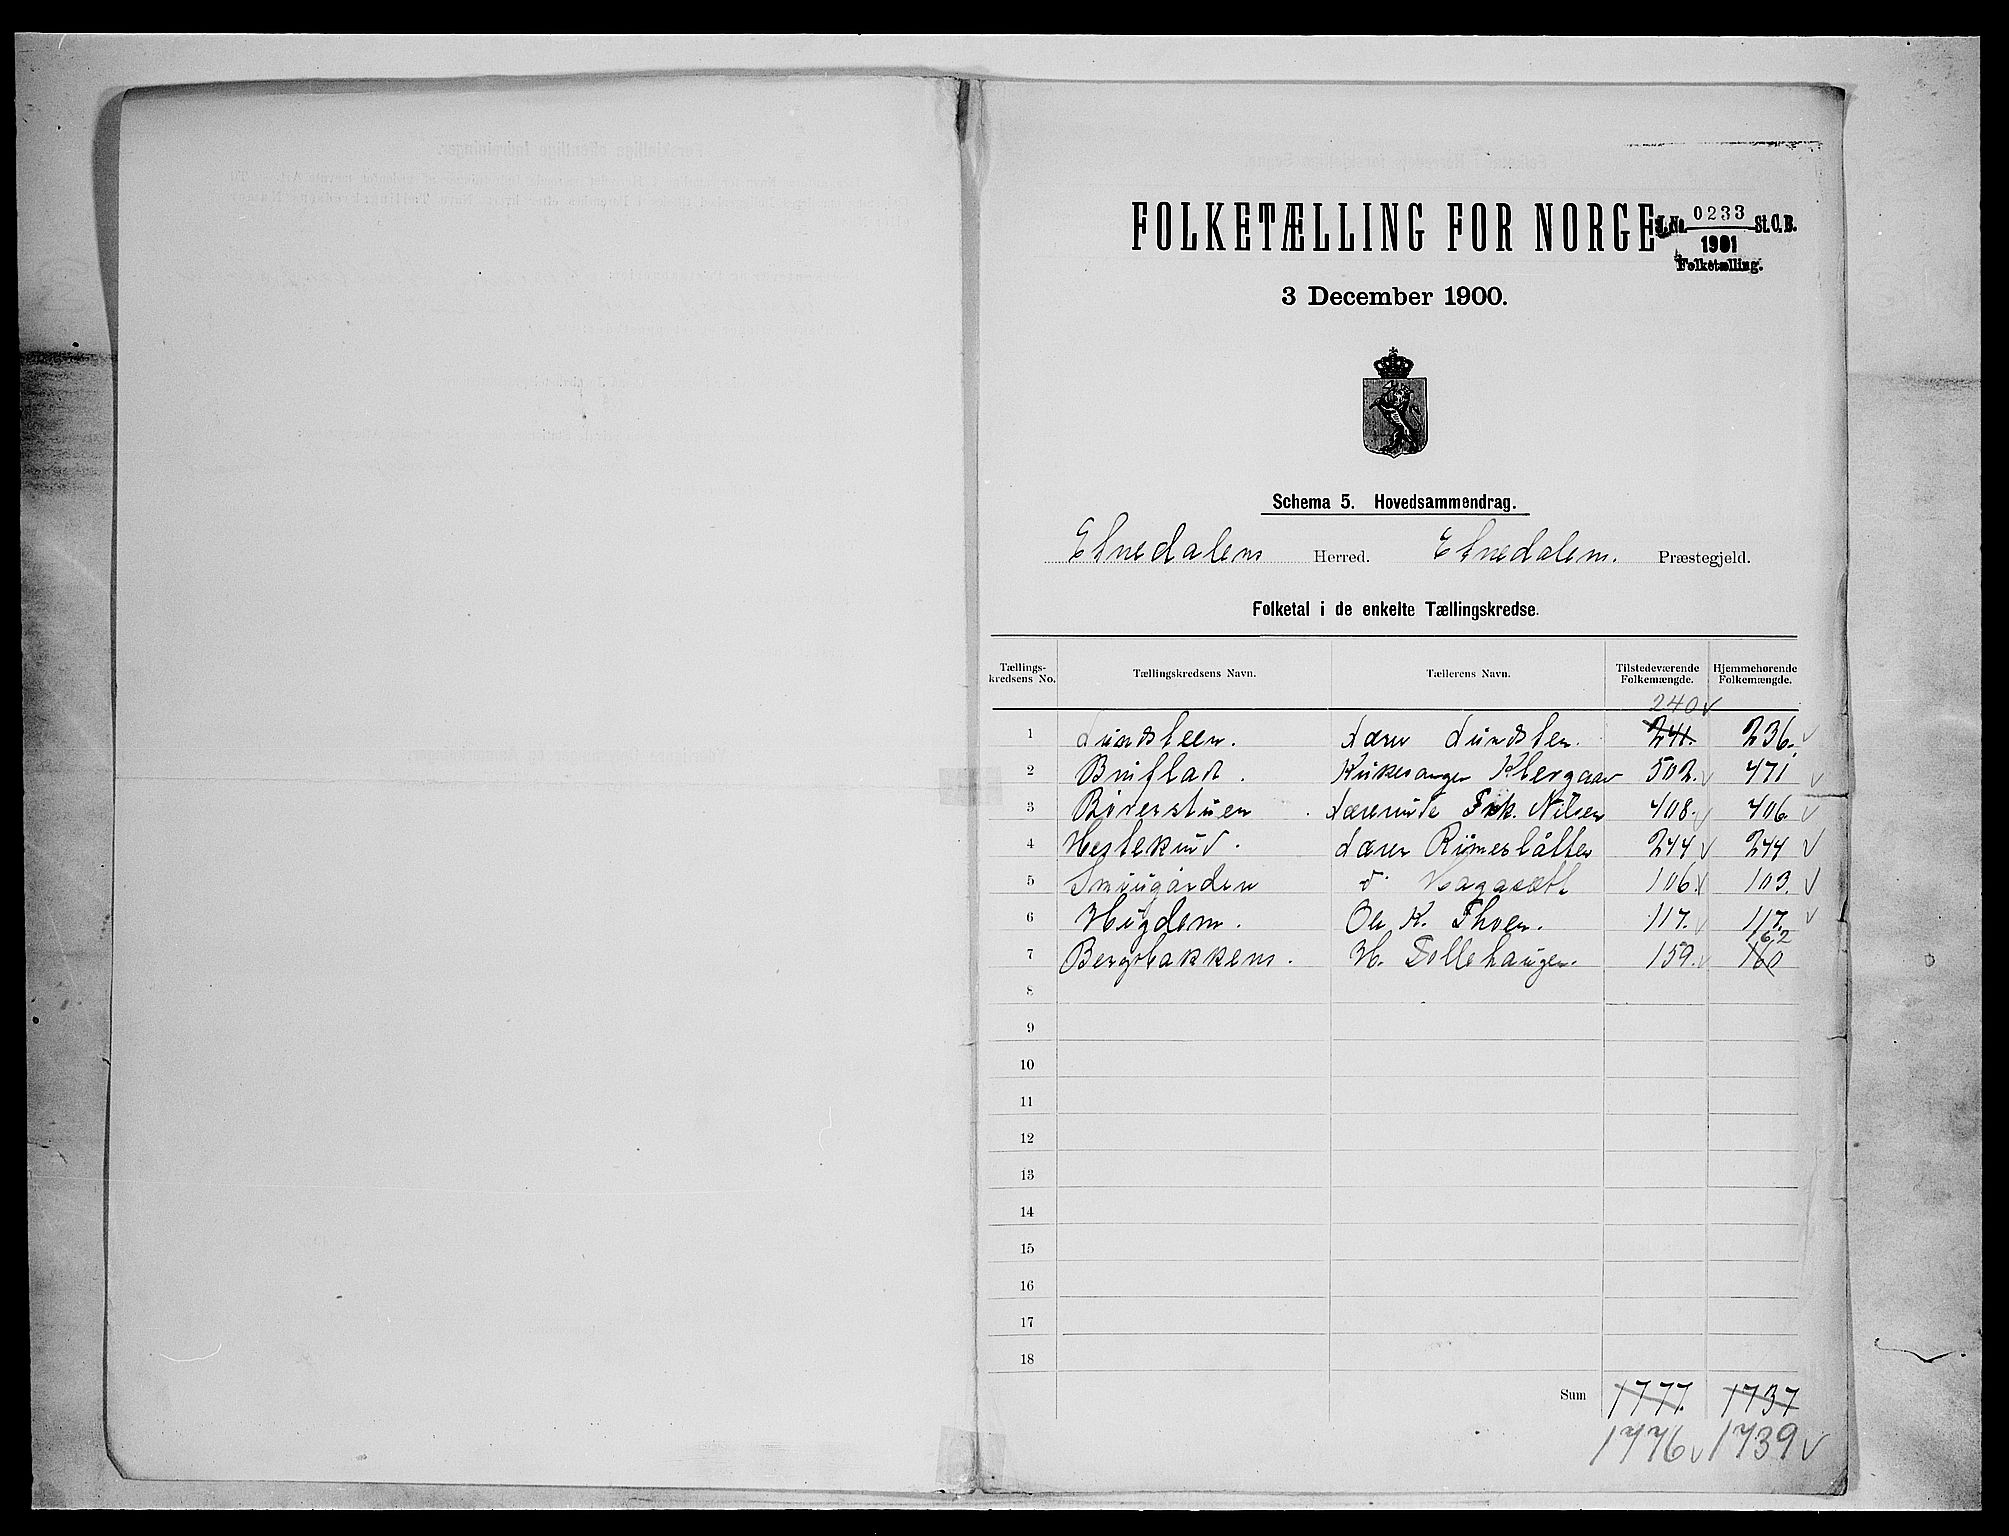 FOLKETÆLLING FOR NORGE
J. No. 0233 St. C. B.
1901
Folketælling.
3 December 1900.
Schema 5. Hovedsammendrag.
Etnedalens Herred. Etnedalens. Præstegjeld.
Folketal i de enkelte Tællingskredse.
Tællingskredsens No. Tællingskredsens Navn. Tællerens Navn. Tilstedeværende Folkemængde. Hjemmehørende Folkemængde.
240
1 Lundsteen. Lærer Lundsten. 241. 236.
2 Bruflat. Kirkesanger Kbergaar 502. 471
3 Bøverstuen Frk. Nilsen 408. 406.
4 Hestekind. Lærer 244 244
5 106. 103.
6 Høgdem. Ole K. Thoen. 117. 117.
162
7 Bergsbakkens. H. Tollehaugen. 159. 160
8
9
10
11
12
13
14
15
16
17
18
Sum 1777. 1737
1776 1739